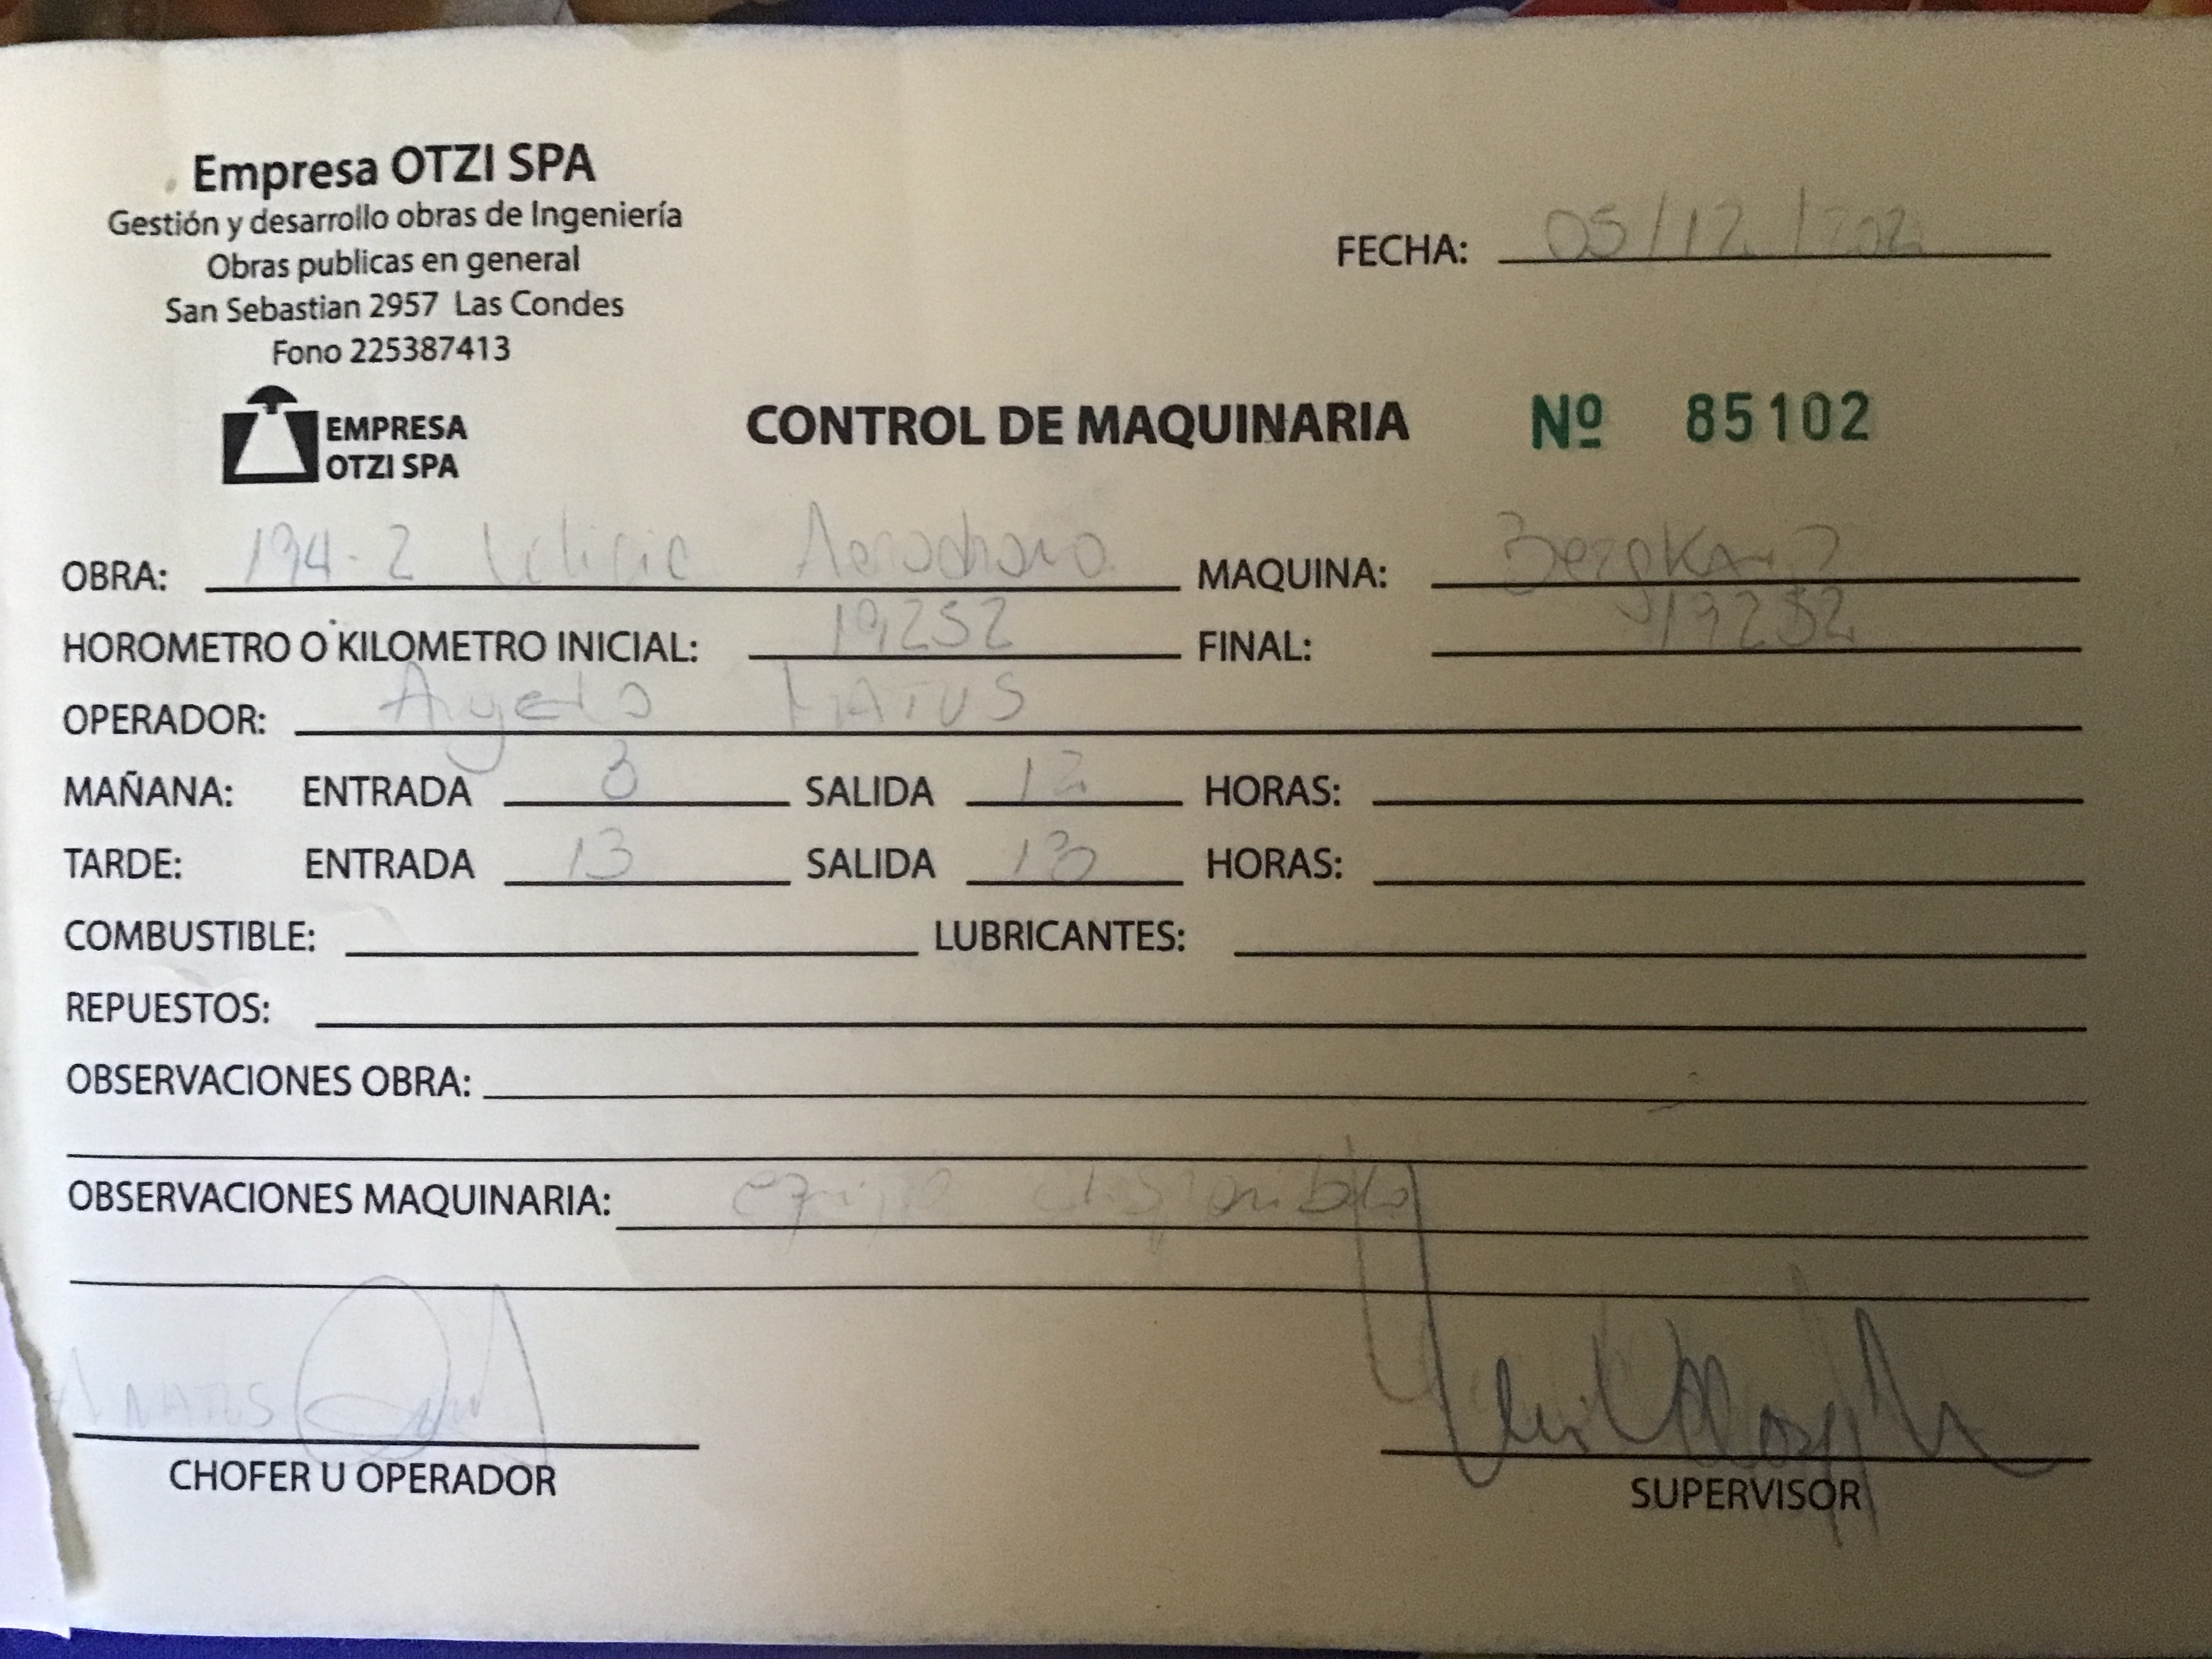 Empresa OTZI SPA
Gestión y desarrollo obras de Ingeniería
Obras publicas en general
San Sebastian 2957 Las Condes
Fono 225387413
FECHA: 05/12/
EMPRESA
OTZI SPA
CONTROL DE MAQUINARIA Nº 85102
OBRA: 194-2 Aerodromo MAQUINA:
HOROMETRO O KILOMETRO INICIAL: 19232 FINAL: 19232
OPERADOR:
MAÑANA: ENTRADA 8 SALIDA 12 HORAS:
TARDE: ENTRADA 13 SALIDA HORAS:
COMBUSTIBLE: LUBRICANTES:
REPUESTOS:
OBSERVACIONES OBRA:
OBSERVACIONES MAQUINARIA: disponible
CHOFER U OPERADOR SUPERVISOR